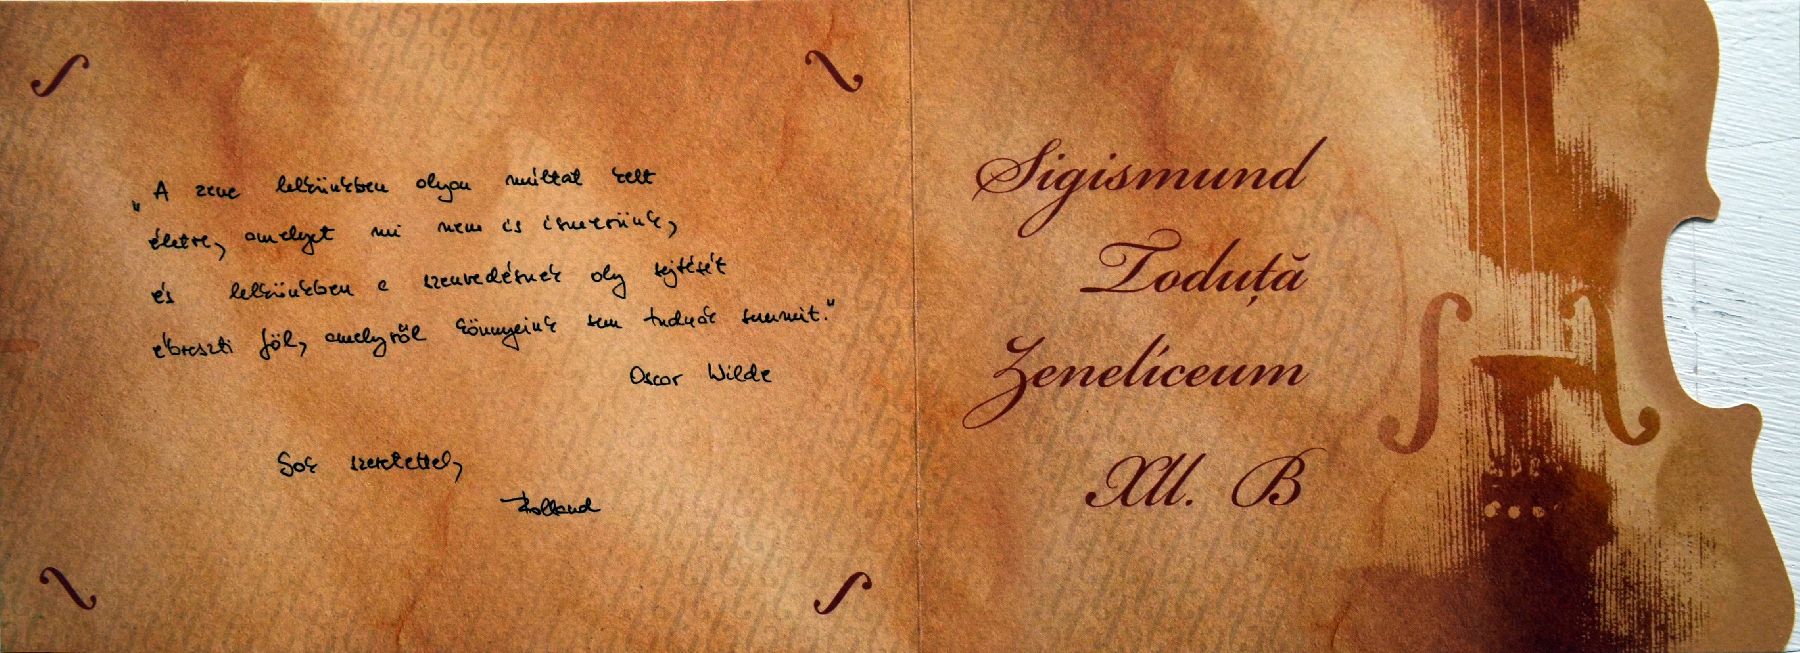 „A zene lelkünkben olyan múltat kelt
életre, amelyet mi nem is ismerünk,
és lelkünkben a szenvedésnek oly sejtését
ébreszti föl, amelyről könnyeink sem tudnak semmit.”
Oscar Wilde
Sok szeretettel,
Rolland
Sigismund
Toduță
Zenelíceum
XII. B